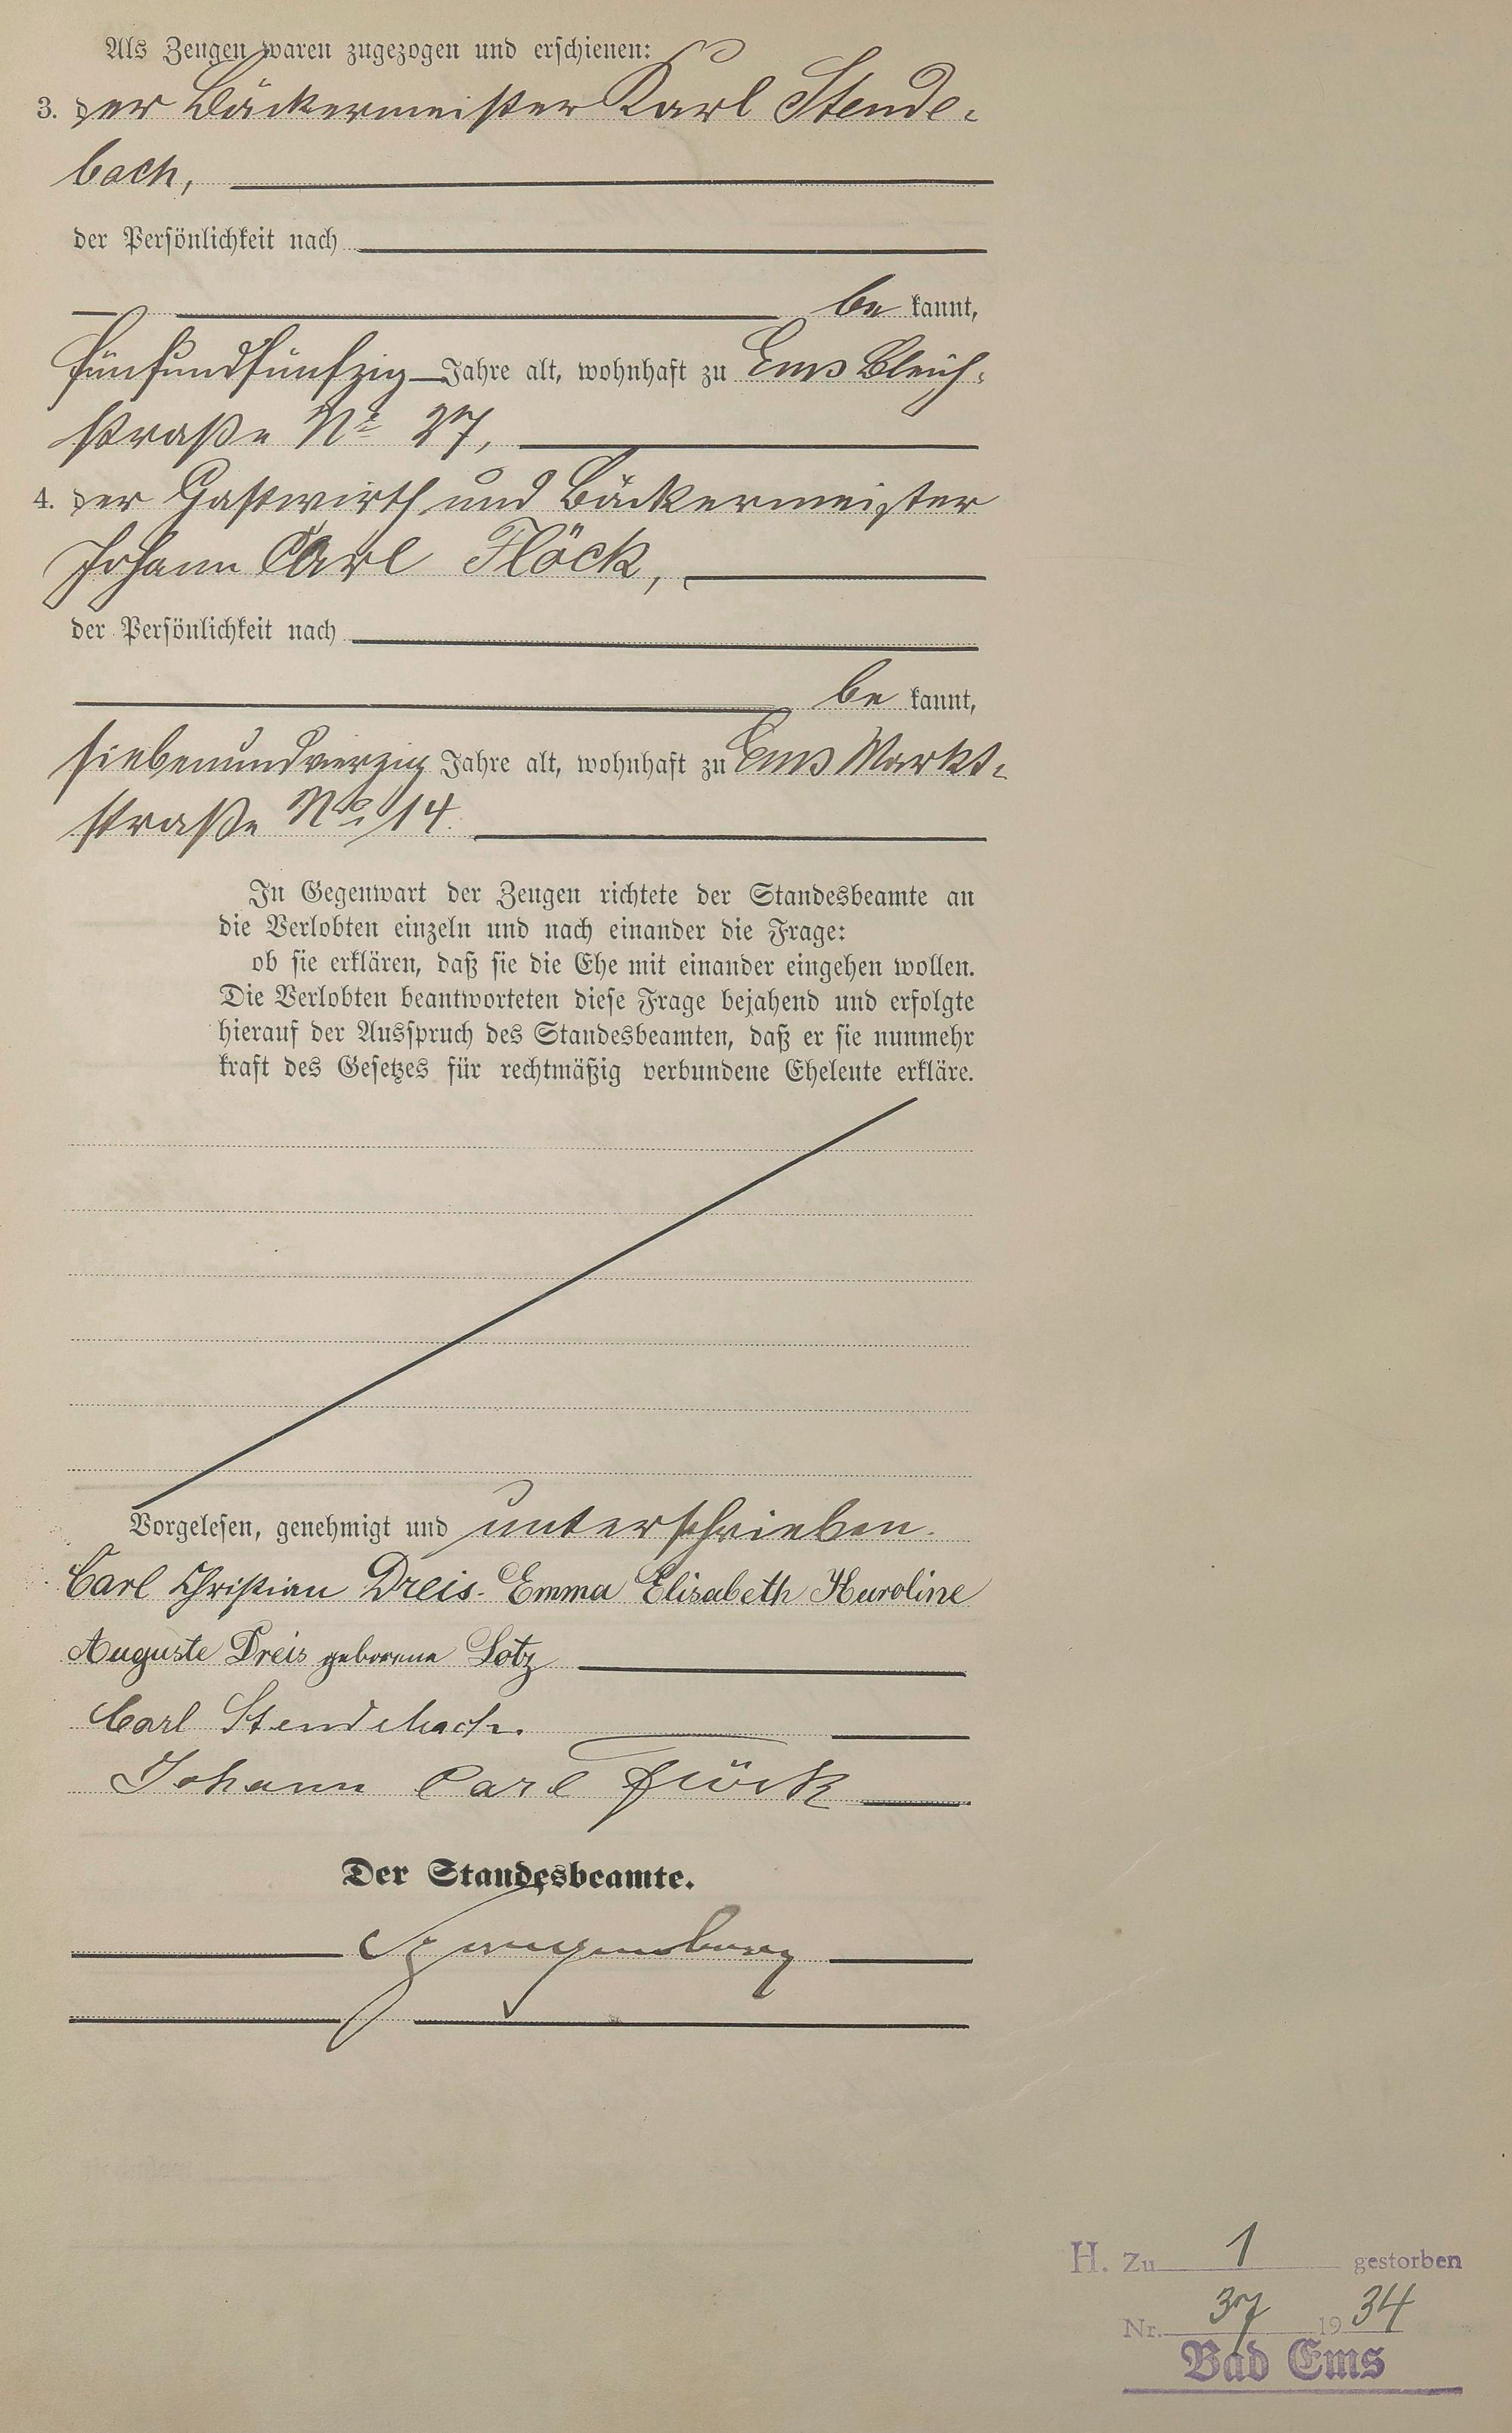 Als Zeugen waren zugezogen und erschienen:
3. der Bäckermeister Karl Stende-
bach,
der Persönlichkeit nach
be kannt,
fünfundfünfzig Jahre alt, wohnhaft zu Ems Bleich-
straße No 27,
4. der Gastwirth und Bäckermeister
Johann Carl Flöck,
der Persönlichkeit nach
be kannt,
siebenundvierzig Jahre alt, wohnhaft zu Ems Markt-
straße No 14.
In Gegenwart der Zeugen richtete der Standesbeamte an
die Verlobten einzeln und nach einander die Frage:
ob sie erklären, daß sie die Ehe mit einander eingehen wollen.
Die Verlobten beantworteten diese Frage bejahend und erfolgte
hierauf der Ausspruch des Standesbeamten, daß er sie nunmehr
kraft des Gesetzes für rechtmäßig verbundene Eheleute erkläre.
Vorgelesen, genehmigt und unterschrieben.
Carl Christian Dreis. Emma Elisabeth Karoline
Auguste Dreis geborene Lotz
Carl Stendebach.
Johann Carl Flöck
Der Standesbeamte.
Spangenberg
H. Zu 1 gestorben
Nr. 37 1934
Bad Ems